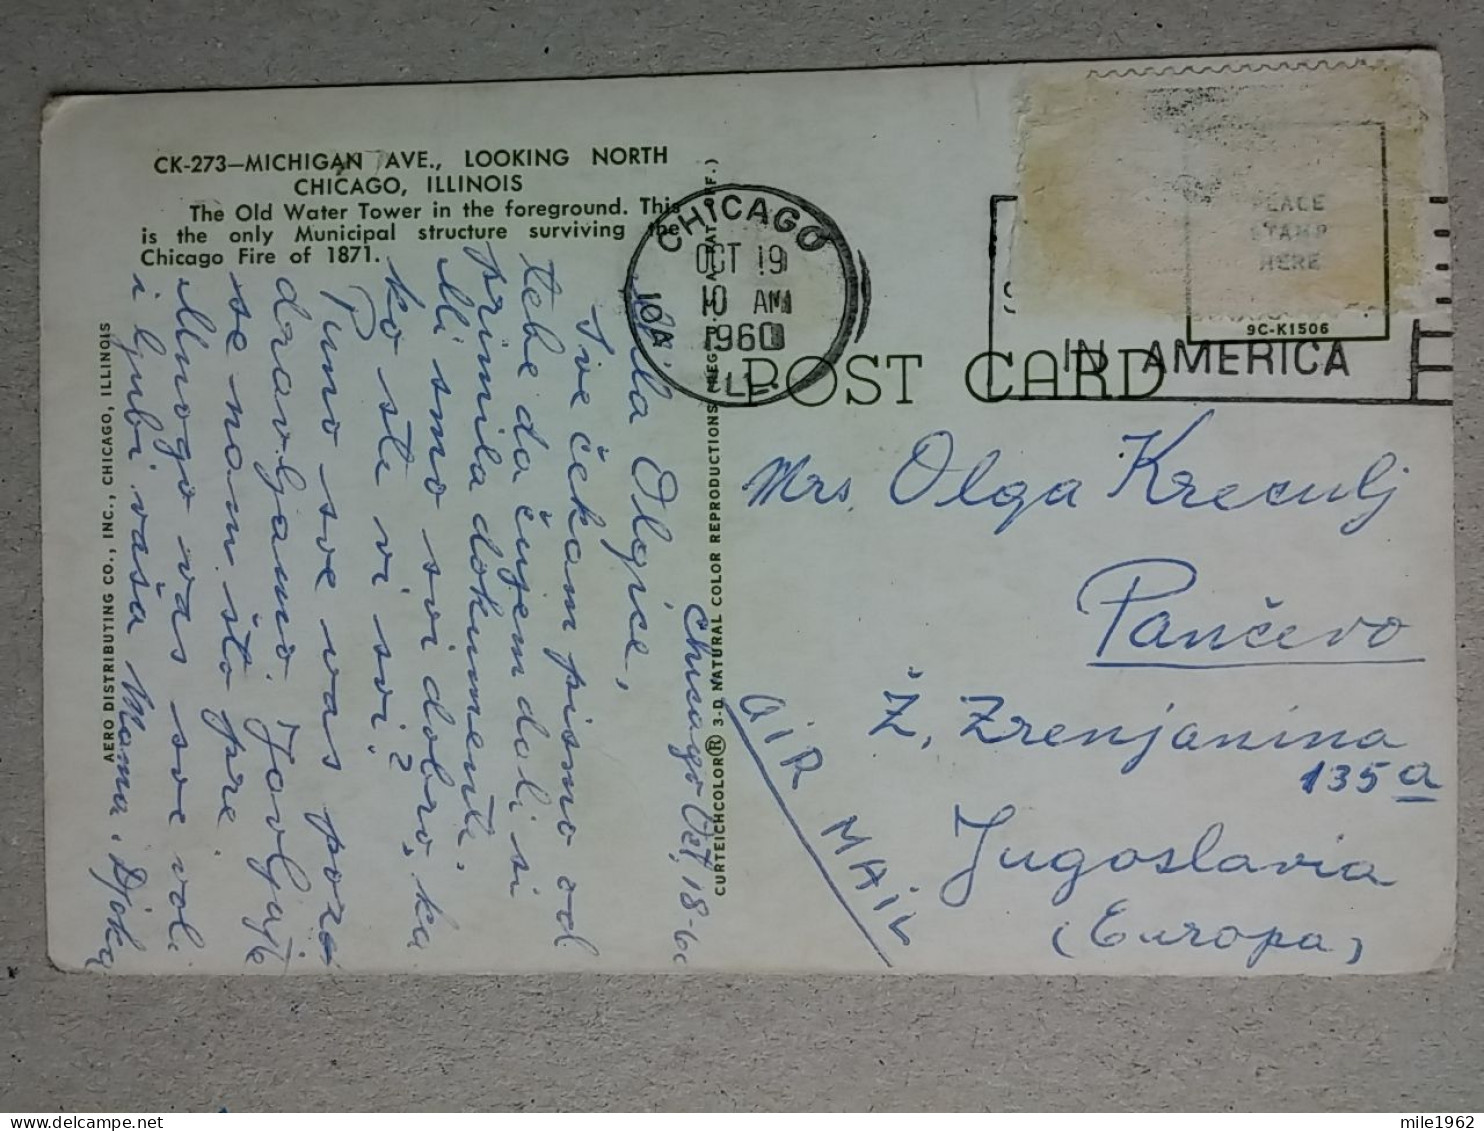 CK-273—MICHIGAN AVE., LOOKING NORTH
CHICAGO, ILLINOIS
The Old Water Tower in the foreground. This
is the only Municipal structure surviving the
Chicago Fire of 1871.
AERO DISTRIBUTING CO., INC., CHICAGO, ILLINOIS
CURTEICHCOLOR® 3-D NATURAL COLOR REPRODUCTIONS
CHICAGO
OCT 19
10 AM
1960
ILL.
10A
PLACE
STAMP
HERE
9C-K1506
IN AMERICA
POST CARD
Chicago Oct, 18-60
Olgice,
Sve čekam pismo od
tebe da čujem dali si
primila dokumente.
Mi smo svi dobro, ka
ko ste vi svi?
Puno sve vas poz
dravljamo. Javljajte
se nam što pre
Mnogo vas sve voli
i ljubi vaša Mama i Djoka
Mrs. Olga Kreculj
Pančevo
Ž. Zrenjanina
135a
Jugoslavia
(Europa)
AIR MAIL
mile1962